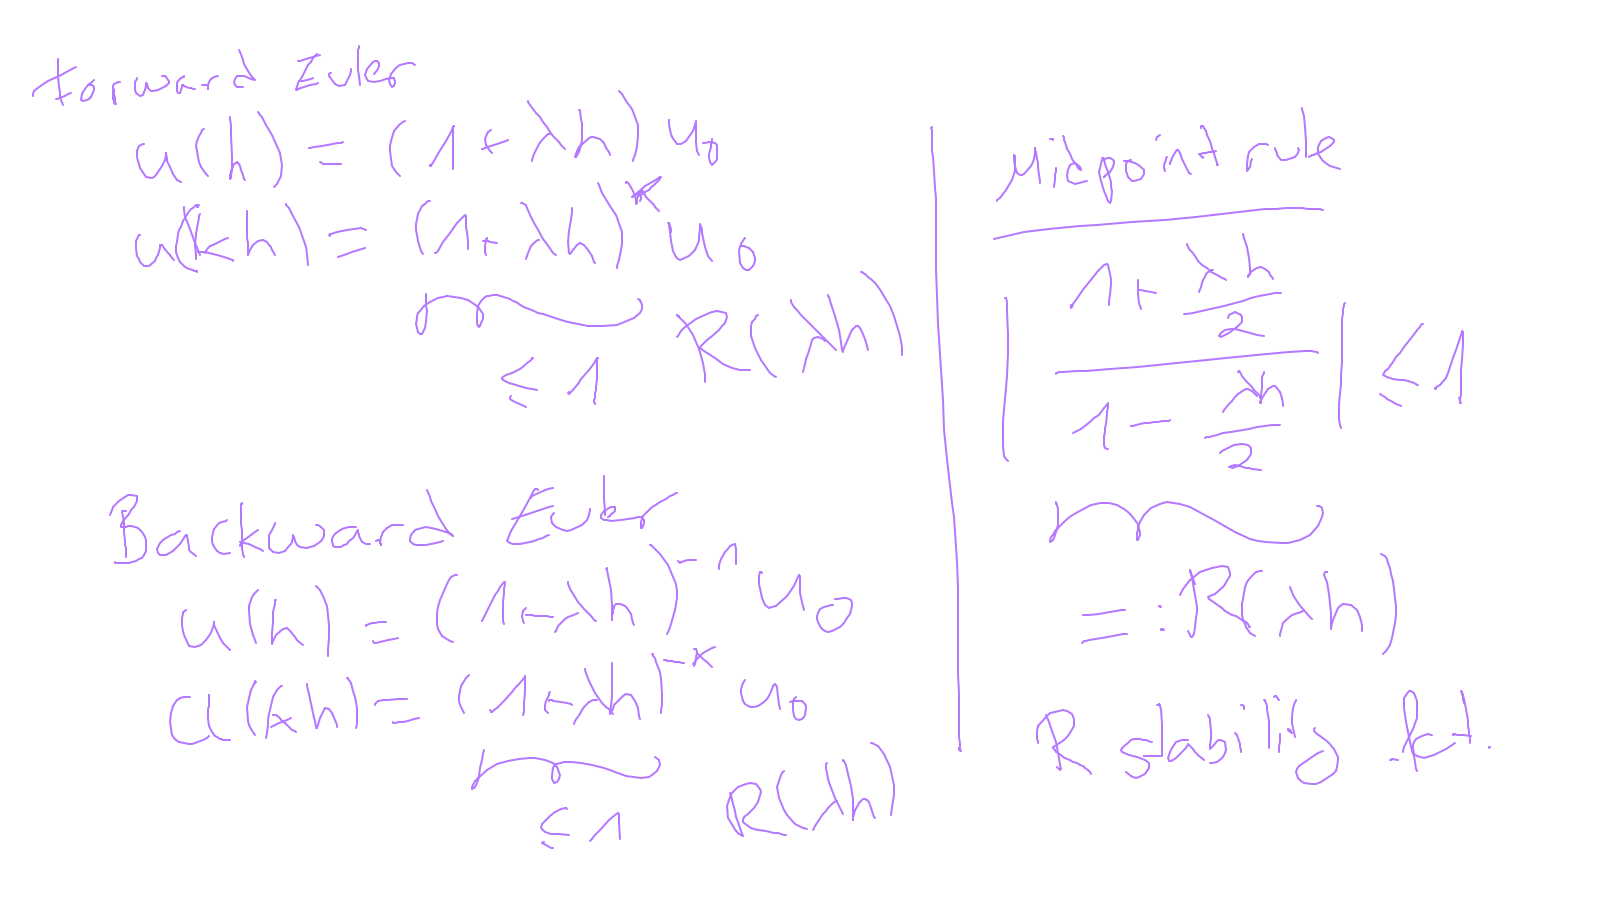 Forward Euler
u(h) = (1 + λh) u₀
u(kh) = (1 + λh)ᵏ u₀
≤ 1 R(λh)
Backward Euler
u(h) = (1 - λh)⁻¹ u₀
u(kh) = (1 - λh)⁻ᵏ u₀
≤ 1 R(λh)
Midpoint rule
| (1 + λh/2) / (1 - λh/2) | ≤ 1
=: R(λh)
R stability fct.